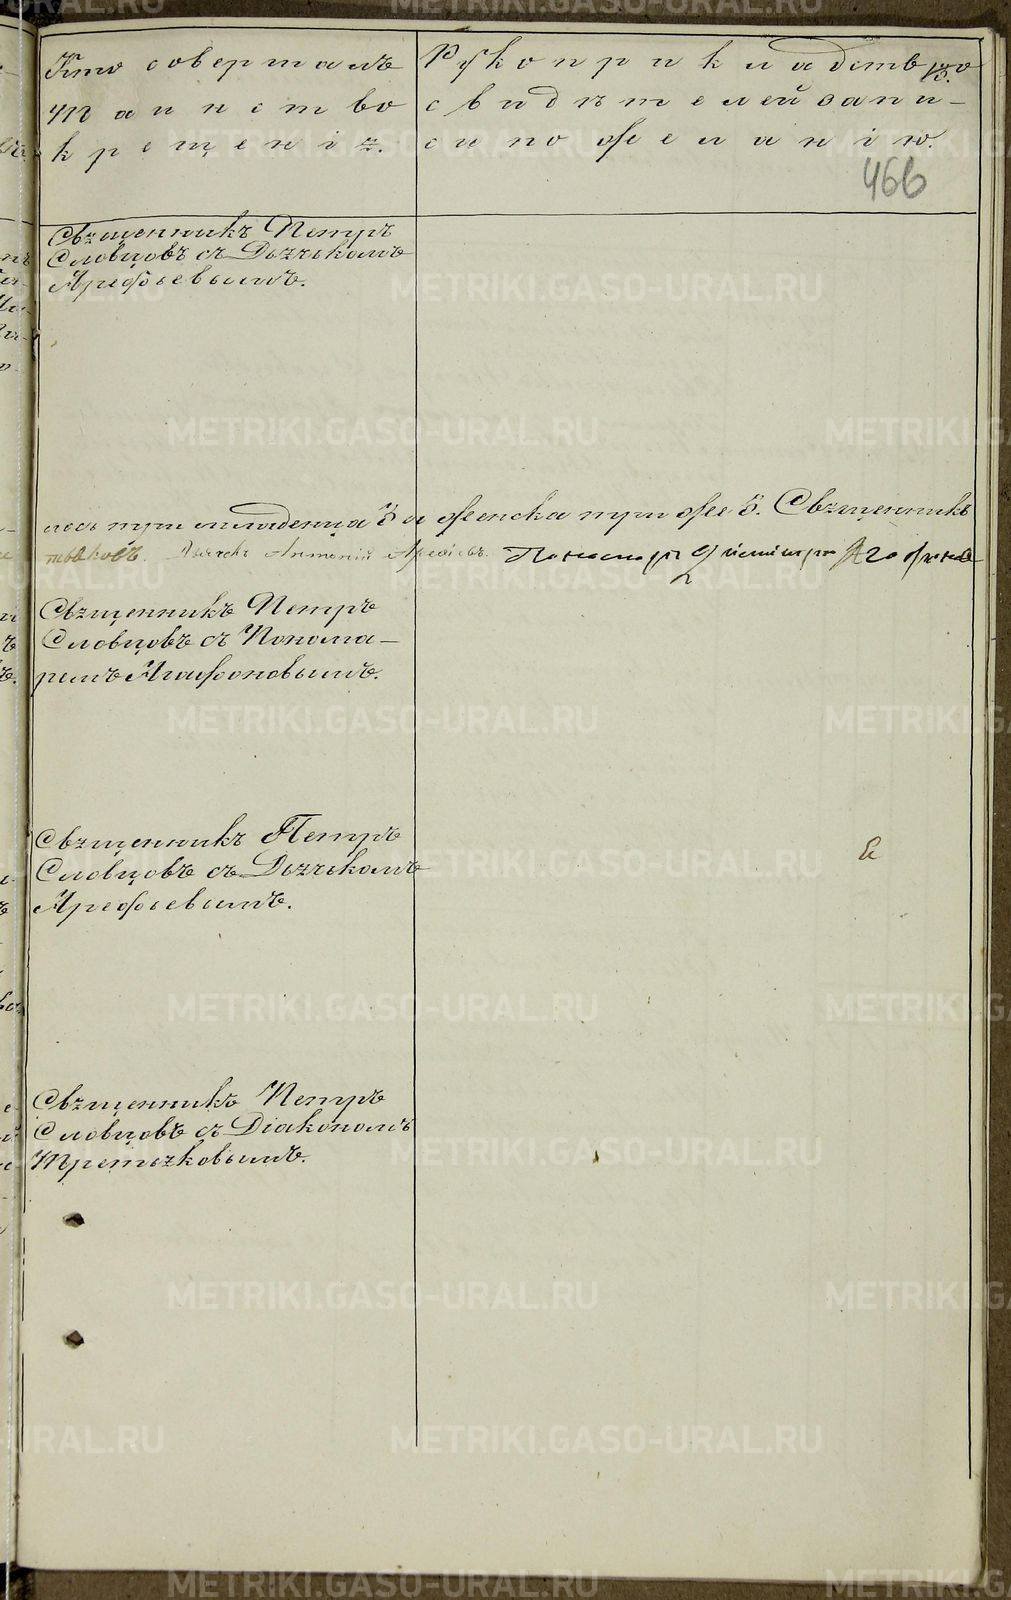 Кто совершалъ
таинство
крещенія.
Рукоприкладство
свидѣтелей запи-
си по желанію.
466
Священникъ Петръ
Словцовъ съ Дьячкомъ
Арефьевымъ.
лось три младенца 3 и женска три же 3. Священникъ
Дьячекъ Антоній Арефьевъ. Пономарь Димитри Агафонов
Священникъ Петръ
Словцовъ съ Понома-
ремъ Агафоновымъ.
Священникъ Петръ
Словцовъ съ Дьячкомъ
Арефьевымъ.
Священникъ Петръ
Словцовъ съ Діакономъ
Третьяковымъ.
METRIKI.GASO-URAL.RU